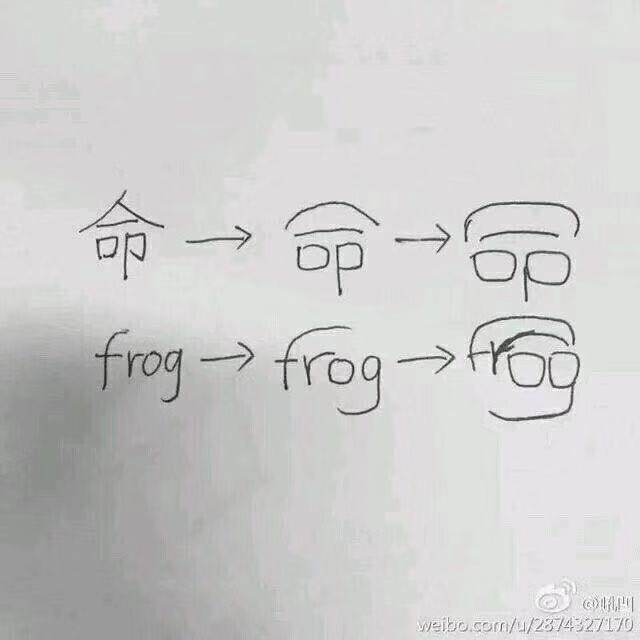 命 → 命 → 命
frog → frog → frog
weibo.com/u/2874327170